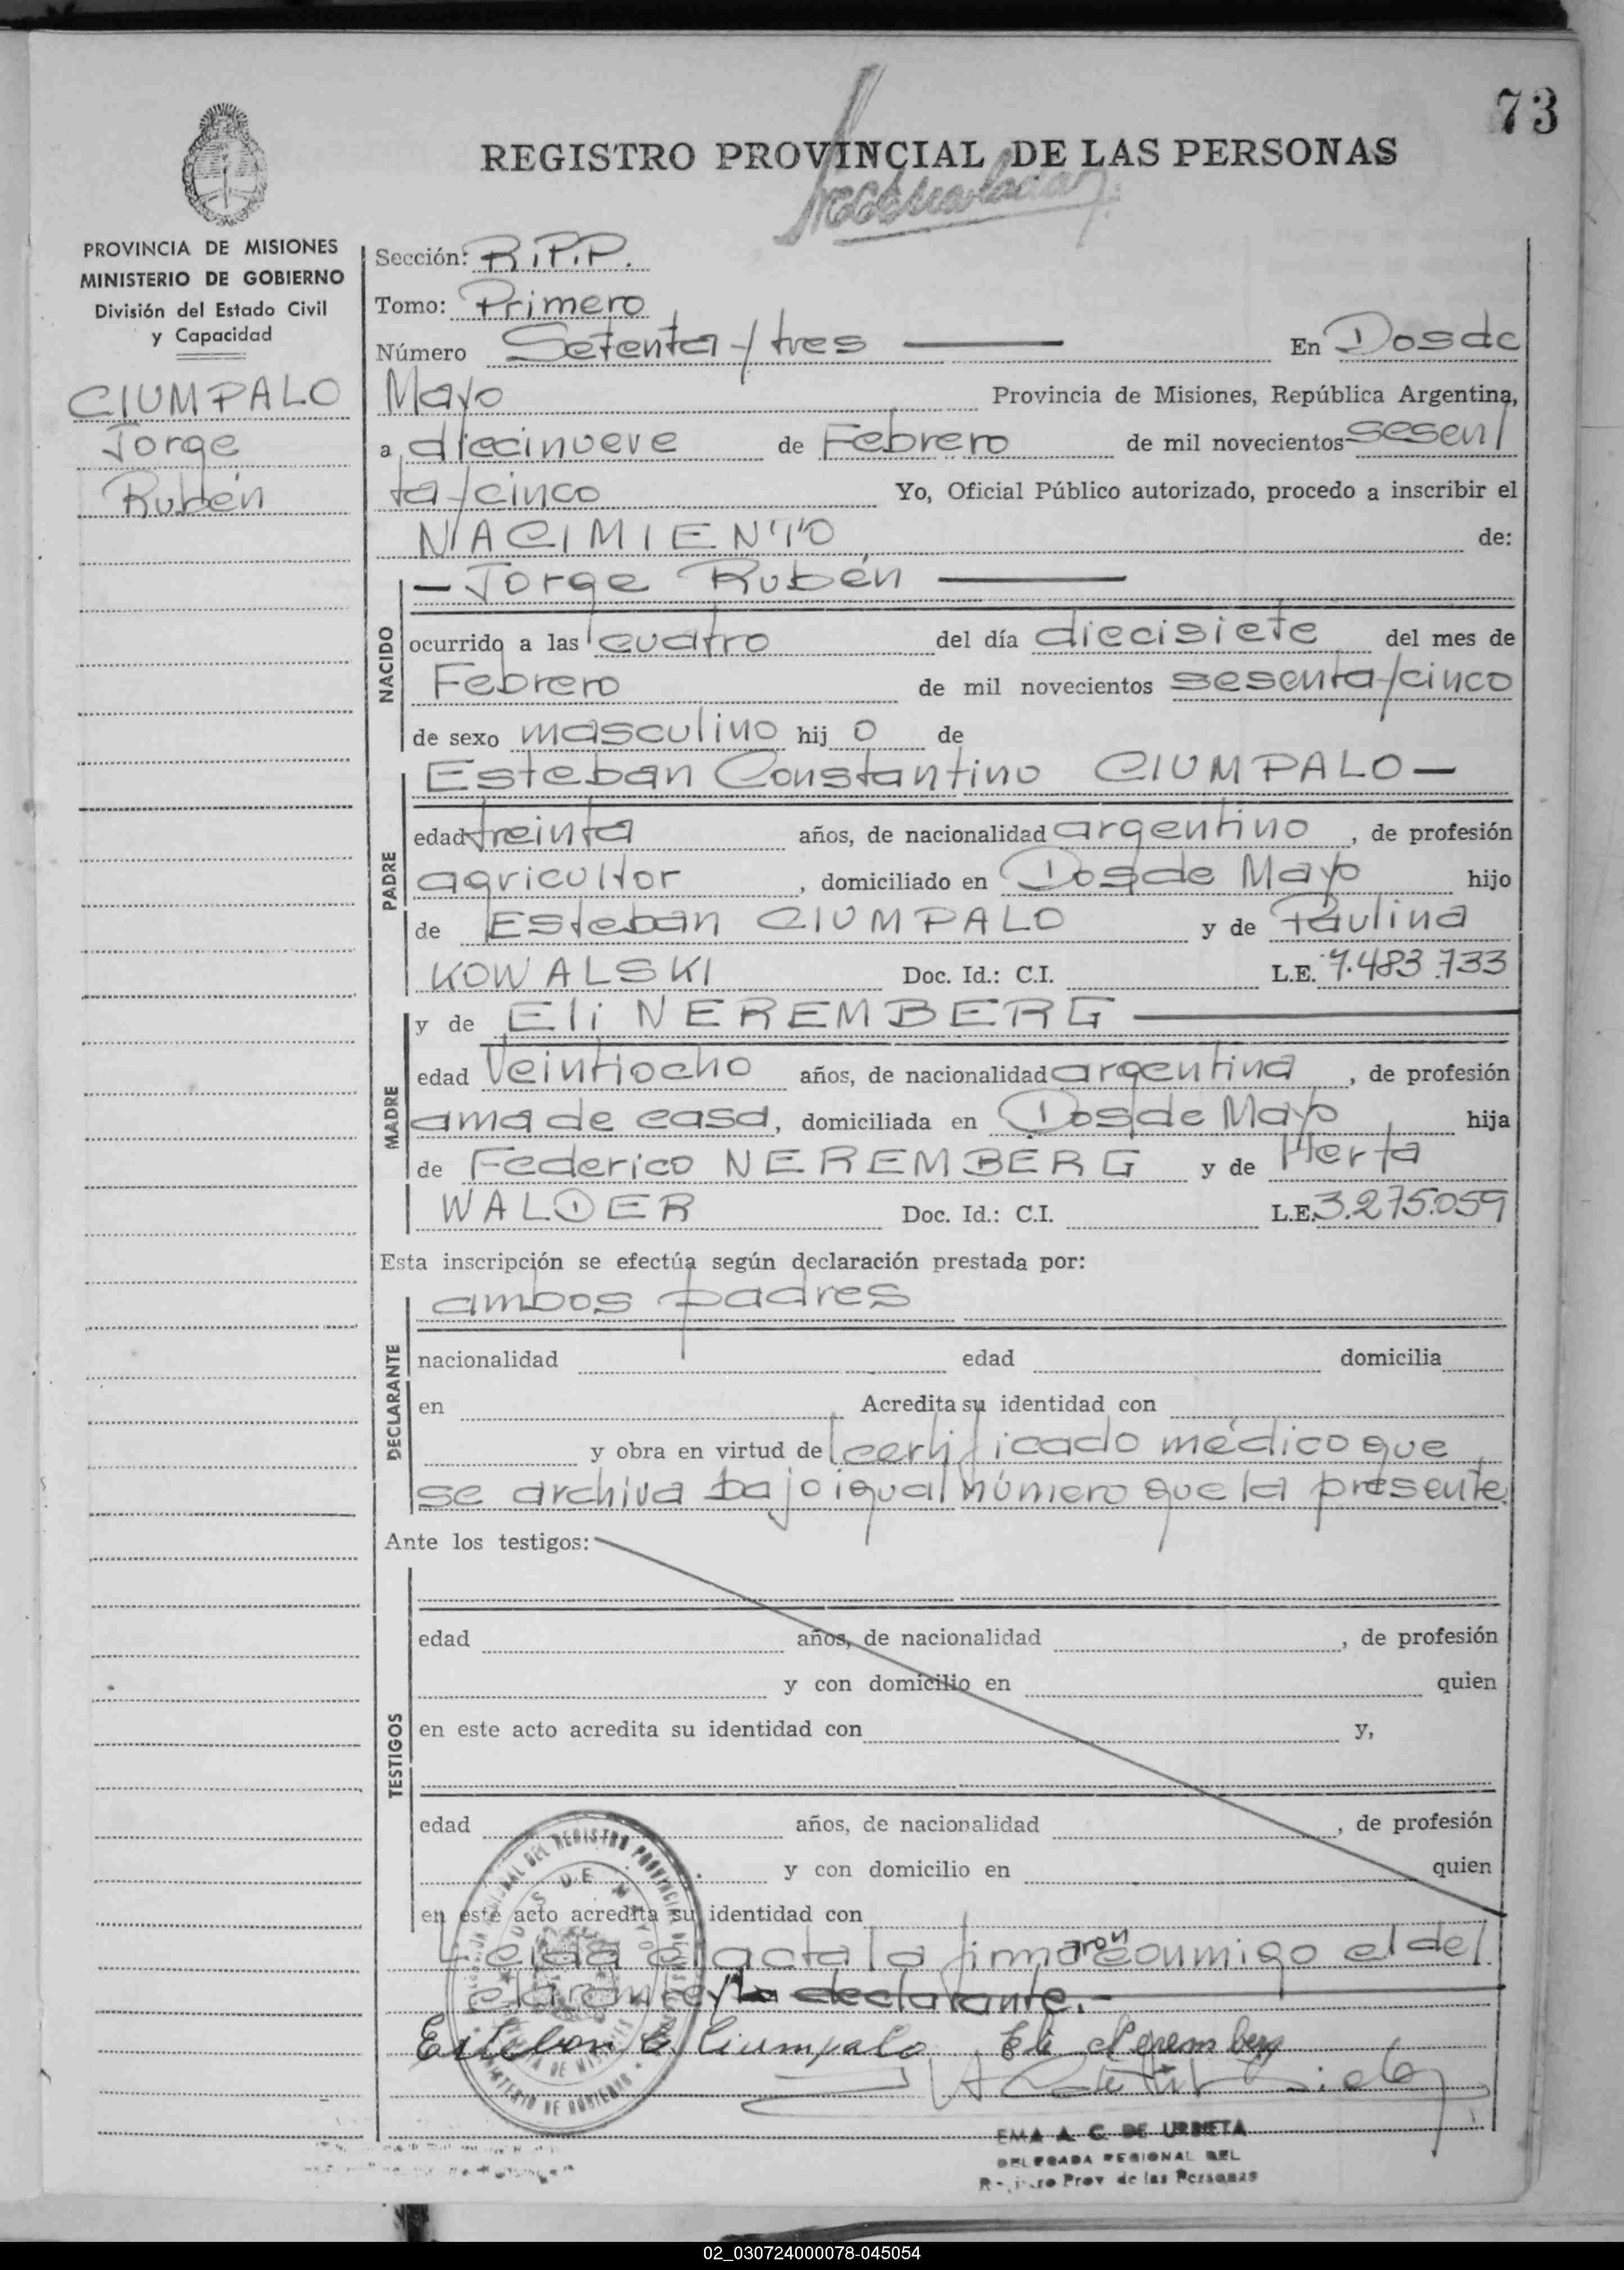 73
REGISTRO PROVINCIAL DE LAS PERSONAS
PROVINCIA DE MISIONES
MINISTERIO DE GOBIERNO
División del Estado Civil
y Capacidad
CIUMPALO
Jorge
Rubén
Sección: R.P.P.
Tomo: Primero
Número Setenta y tres En Dos de
Mayo Provincia de Misiones, República Argentina,
a diecinueve de Febrero de mil novecientos sesen
ta y cinco Yo, Oficial Público autorizado, procedo a inscribir el
NACIMIENTO de:
NACIDO
— Jorge Rubén —
ocurrido a las cuatro del día diecisiete del mes de
Febrero de mil novecientos sesenta y cinco
de sexo masculino hij o de
PADRE
Esteban Constantino CIUMPALO —
edad treinta años, de nacionalidad argentino, de profesión
agricultor, domiciliado en Dos de Mayo hijo
de Esteban CIUMPALO y de Paulina
KOWALSKI Doc. Id.: C.I. L.E. 7.483.733
MADRE
y de Eli NEREMBERG —
edad Veintiocho años, de nacionalidad argentina, de profesión
ama de casa, domiciliada en Dos de Mayo hija
de Federico NEREMBERG y de Herta
WALDER Doc. Id.: C.I. L.E. 3.275.059
Esta inscripción se efectúa según declaración prestada por:
DECLARANTE
ambos padres
nacionalidad edad domicilia
en Acredita su identidad con
y obra en virtud del certificado médico que
se archiva bajo igual número que la presente.
Ante los testigos:
TESTIGOS
edad años, de nacionalidad , de profesión
y con domicilio en quien
en este acto acredita su identidad con y,
edad años, de nacionalidad , de profesión
y con domicilio en quien
en este acto acredita su identidad con
Leida el acta la firmaron conmigo el de
clarante y la declarante.-
Esteban C. Ciumpalo Eli Neremberg
DOS DE MAYO
EMA A. C. DE URRIETA
DELEGADA REGIONAL DEL
Registro Prov de las Personas
02_030724000078-045054